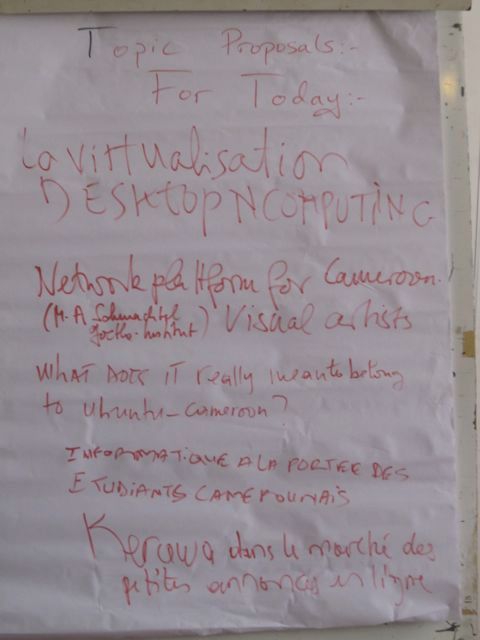 Topic Proposals:-
For Today:-
La virtualisation
DESKTOP NCOMPUTING
Network platform for Cameroon.
(M. A Schmachtel
Goethe-institut) Visual artists
WHAT DOES IT really mean to belong
to ubuntu-cameroon?
INFORMATIQUE A LA PORTEE DES
ETUDIANTS CAMEROUNAIS
Kerawa dans le marché des
petites annonces en ligne